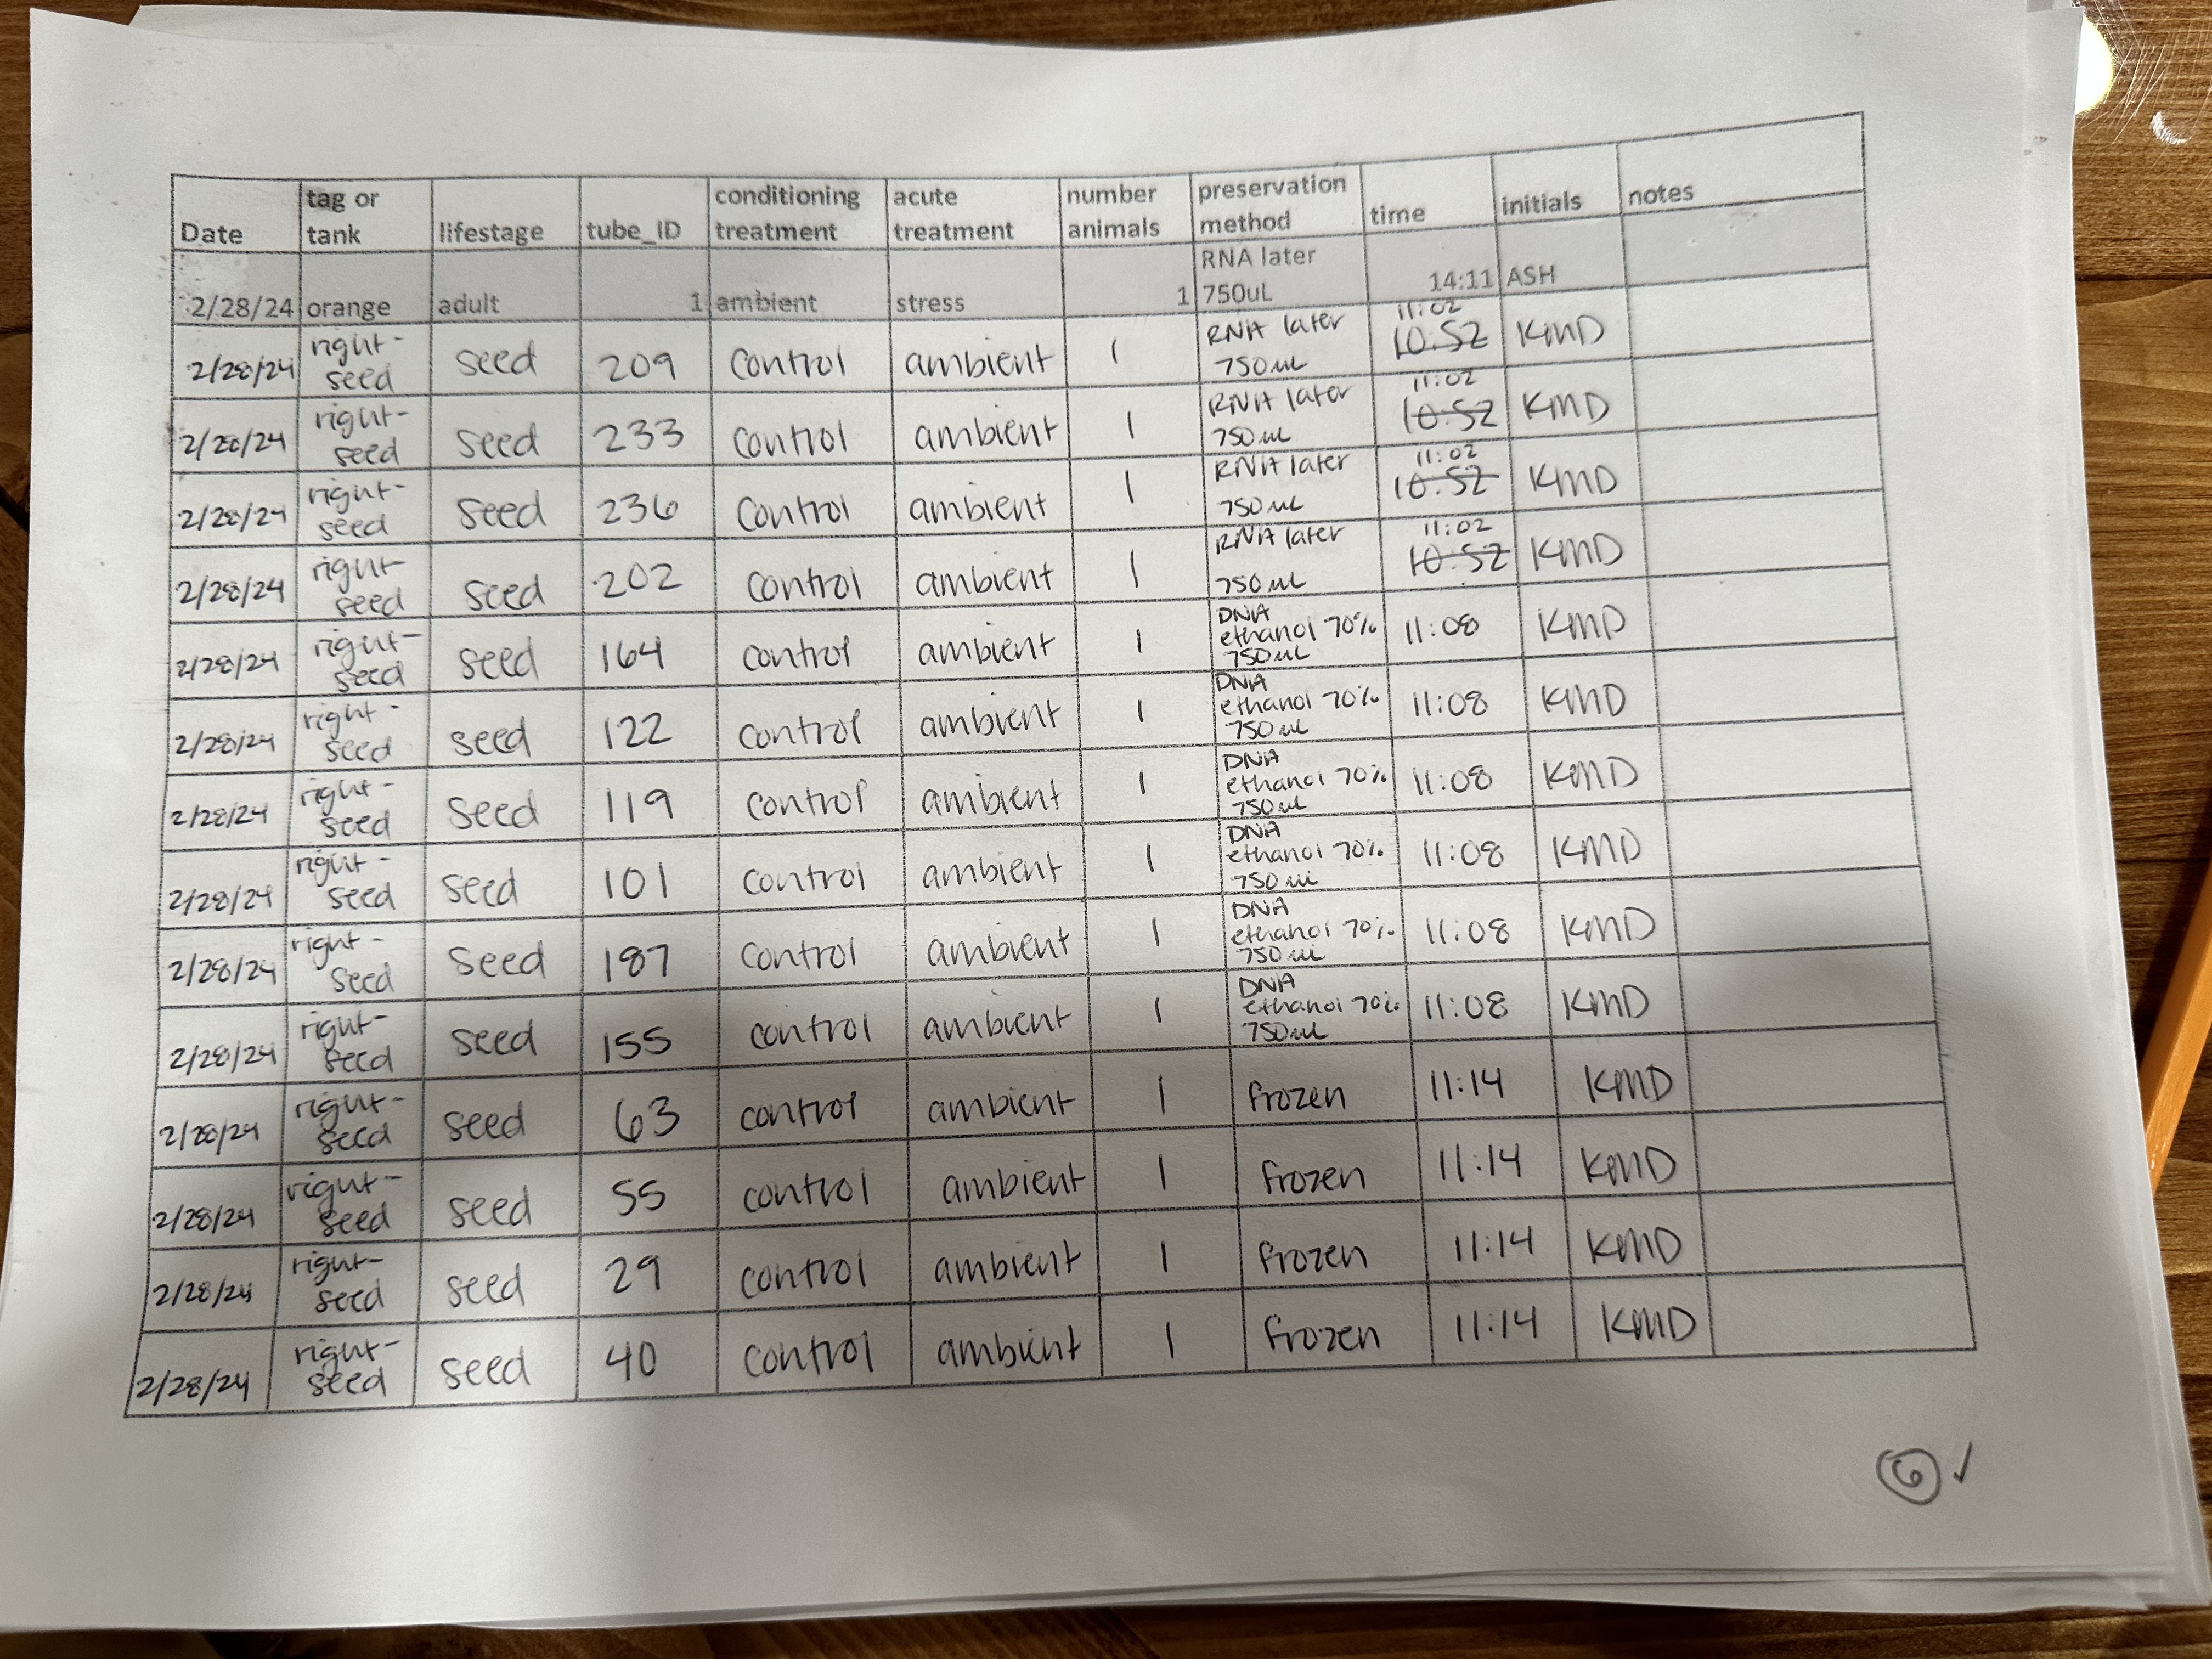 Date tag or tank lifestage tube_ID conditioning treatment acute treatment number animals preservation method time initials notes
2/28/24 orange adult 1 ambient stress 1 RNA later 750uL 14:11 ASH
2/28/24 right-seed seed 209 control ambient 1 RNA later 750uL 10:52 11:02 KMD
2/28/24 right-seed seed 233 control ambient 1 RNA later 750uL 10:52 11:02 KMD
2/28/24 right-seed seed 236 control ambient 1 RNA later 750uL 10:52 11:02 KMD
2/28/24 right-seed seed 202 control ambient 1 RNA later 750uL 10:52 11:02 KMD
2/28/24 right-seed seed 164 control ambient 1 DNA ethanol 70% 750uL 11:08 KMD
2/28/24 right-seed seed 122 control ambient 1 DNA ethanol 70% 750uL 11:08 KMD
2/28/24 right-seed seed 119 control ambient 1 DNA ethanol 70% 750uL 11:08 KMD
2/28/24 right-seed seed 101 control ambient 1 DNA ethanol 70% 750uL 11:08 KMD
2/28/24 right-seed seed 187 control ambient 1 DNA ethanol 70% 750uL 11:08 KMD
2/28/24 right-seed seed 155 control ambient 1 DNA ethanol 70% 750uL 11:08 KMD
2/28/24 right-seed seed 63 control ambient 1 frozen 11:14 KMD
2/28/24 right-seed seed 55 control ambient 1 frozen 11:14 KMD
2/28/24 right-seed seed 29 control ambient 1 frozen 11:14 KMD
2/28/24 right-seed seed 40 control ambient 1 frozen 11:14 KMD